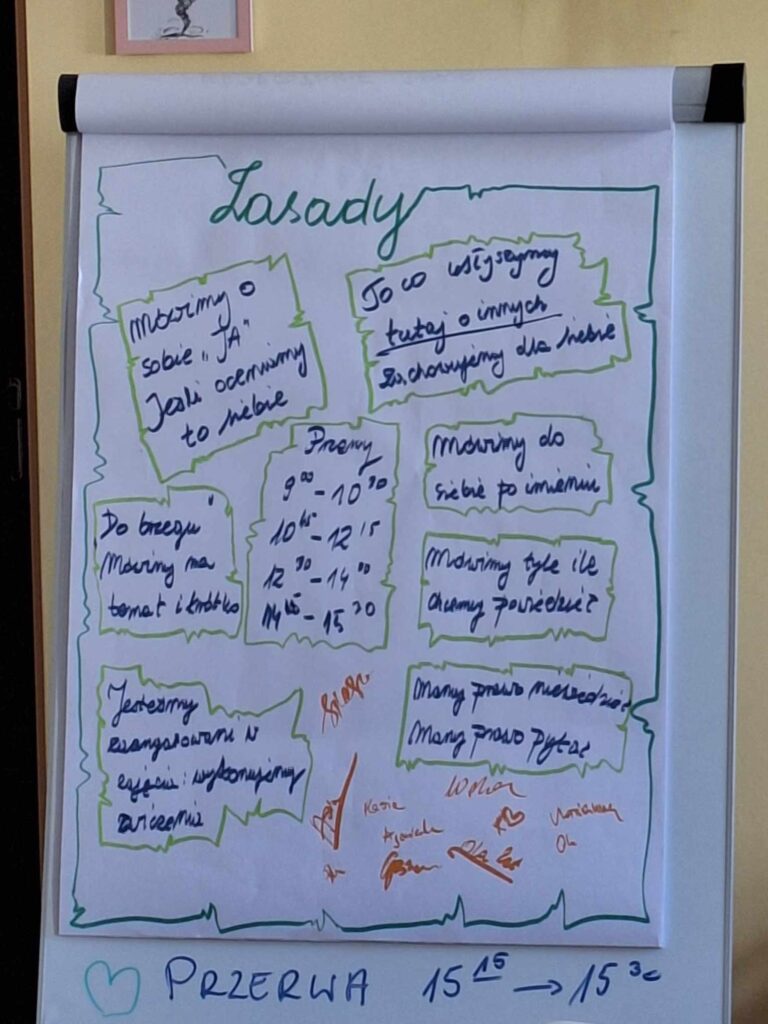 Zasady
Mówimy o
sobie „JA"
Jeśli oceniamy
to siebie
To co usłyszymy
tutaj o innych
zachowujemy dla siebie
Przerwy
9 00 - 10 30
10 45 - 12 15
12 30 - 14 00
14 15 - 15 30
Mówimy do
siebie po imieniu
„Do brzegu"
Mówimy na
temat i krótko
Mówimy tyle ile
chcemy powiedzieć
Jesteśmy
zaangażowani w
zajęcia i wykonujemy
ćwiczenia
Mamy prawo nie wiedzieć
Mamy prawo pytać
Kasia
Agnieszka
Ola
PRZERWA 15 15 → 15 30